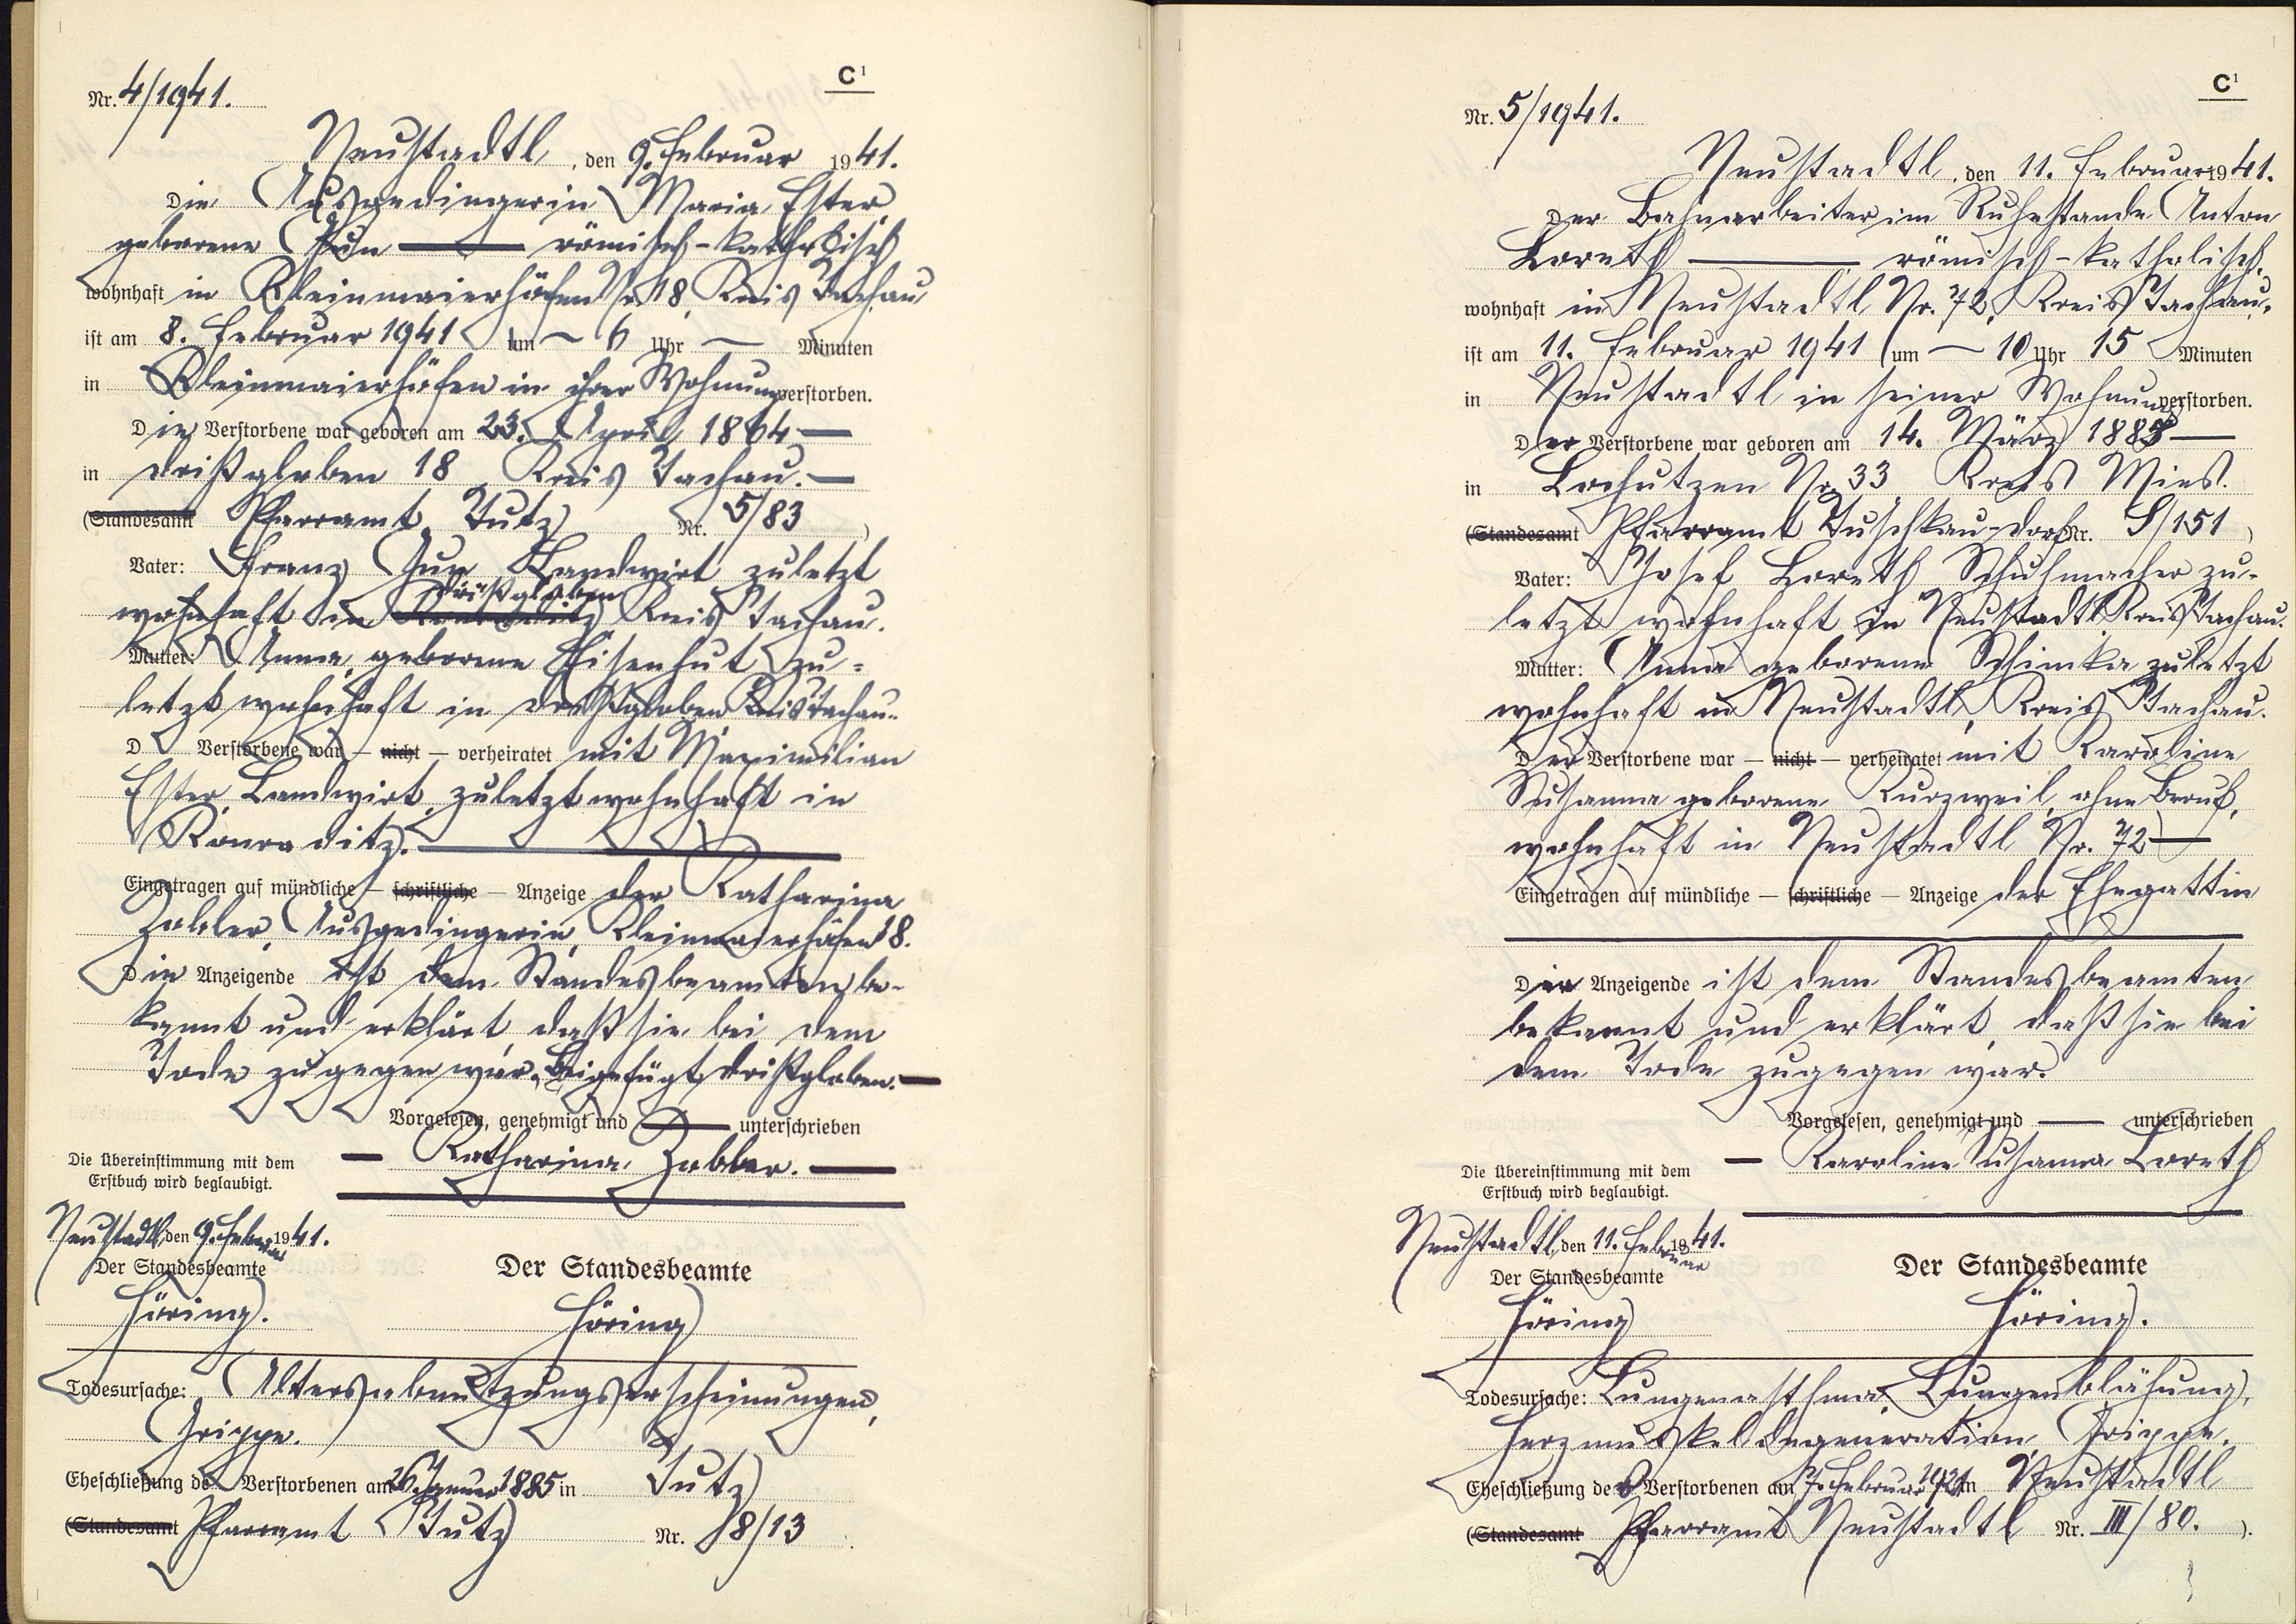 C¹
Nr. 4/1941.
Neustadtl, den 9. Februar 1941.
Die Ausgedingerin Maria Ester,
geborene römisch-katholisch
wohnhaft in Kleinmaierhöfen Nr. 18, Kreis Tachau
ist am 8. Februar 1941 um 6 Uhr — Minuten
in Kleinmaierhöfen in ihrer Wohnung verstorben.
Die Verstorbene war geboren am 23. April 1864
in Drißgloben 18 Kreis Tachau.
(Standesamt Pfarramt Tutz Nr. 5/83 )
Vater: Franz Landwirt zuletzt
wohnhaft in Drißgloben Kreis Tachau.
Mutter: Anna, geborene Eisenhut zu-
letzt wohnhaft in Drißgloben Kreis Tachau.
D Verstorbene war — nicht — verheiratet mit Maximilian
Ester, Landwirt, zuletzt wohnhaft in
Konraditz.
Eingetragen auf mündliche — schriftliche — Anzeige der Katharina
Ausgedingerin, Kleinmaierhöfen 18.
Die Anzeigende ist dem Standesbeamten be-
kannt und erklärt, daß sie bei dem
Tode zugegen war. Beigefügt Drißgloben.
Vorgelesen, genehmigt und — unterschrieben
Katharina
Die Übereinstimmung mit dem
Erstbuch wird beglaubigt.
Neustadtl, den 9. Februar 1941.
Der Standesbeamte
Höring.
Der Standesbeamte
Höring
Todesursache: Altersabnützungserscheinungen,
Grippe.
Eheschließung der Verstorbenen am 26. Jänner 1885 in Tutz
(Standesamt Pfarramt Tutz Nr. 8/13
C¹
Nr. 5/1941.
Neustadtl, den 11. Februar 1941.
Der Bahnarbeiter im Ruhestande Anton
Loreth — römisch-katholisch,
wohnhaft in Neustadtl Nr. 72, Kreis Tachau,
ist am 11. Februar 1941 um — 10 Uhr 15 Minuten
in Neustadtl in seiner Wohnung verstorben.
Der Verstorbene war geboren am 14. März
in Lochutzen Nr. 33 Kreis Mies.
(Standesamt Pfarramt Tuschkau-Dorf Nr. /151 )
Vater: Josef Loreth Schuhmacher zu-
letzt wohnhaft in Neustadtl Kreis Tachau.
Mutter: Anna geborene Schimka, zuletzt
wohnhaft in Neustadtl, Kreis Tachau.
Der Verstorbene war — nicht — verheiratet mit Karoline
Susanna geborene Kurzweil, ohne Beruf,
wohnhaft in Neustadtl Nr. 72
Eingetragen auf mündliche — schriftliche — Anzeige der Ehegattin
Die Anzeigende ist dem Standesbeamten
bekannt und erklärt, daß sie bei
dem Tode zugegen war.
Vorgelesen, genehmigt und — unterschrieben
Karoline Susanna Loreth
Die Übereinstimmung mit dem
Erstbuch wird beglaubigt.
Neustadtl, den 11. Februar 1941.
Der Standesbeamte
Höring
Der Standesbeamte
Höring.
Todesursache: Lungenasthma, Lungenblähung,
Herzmuskeldegeneration, Grippe.
Eheschließung des Verstorbenen am 7. Februar 1921 in Neustadtl
(Standesamt Pfarramt Neustadtl Nr. III/80. ).